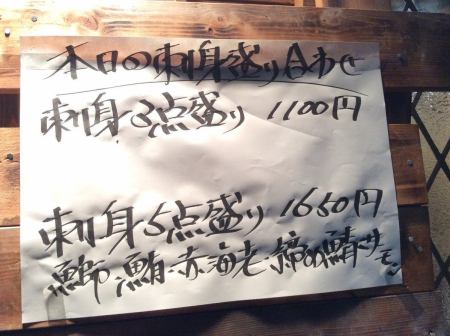 本日の刺身盛り合わせ
刺身3点盛り 1100円
刺身5点盛り 1650円
鰤・鮪・赤海老・〆め鯖・サーモン